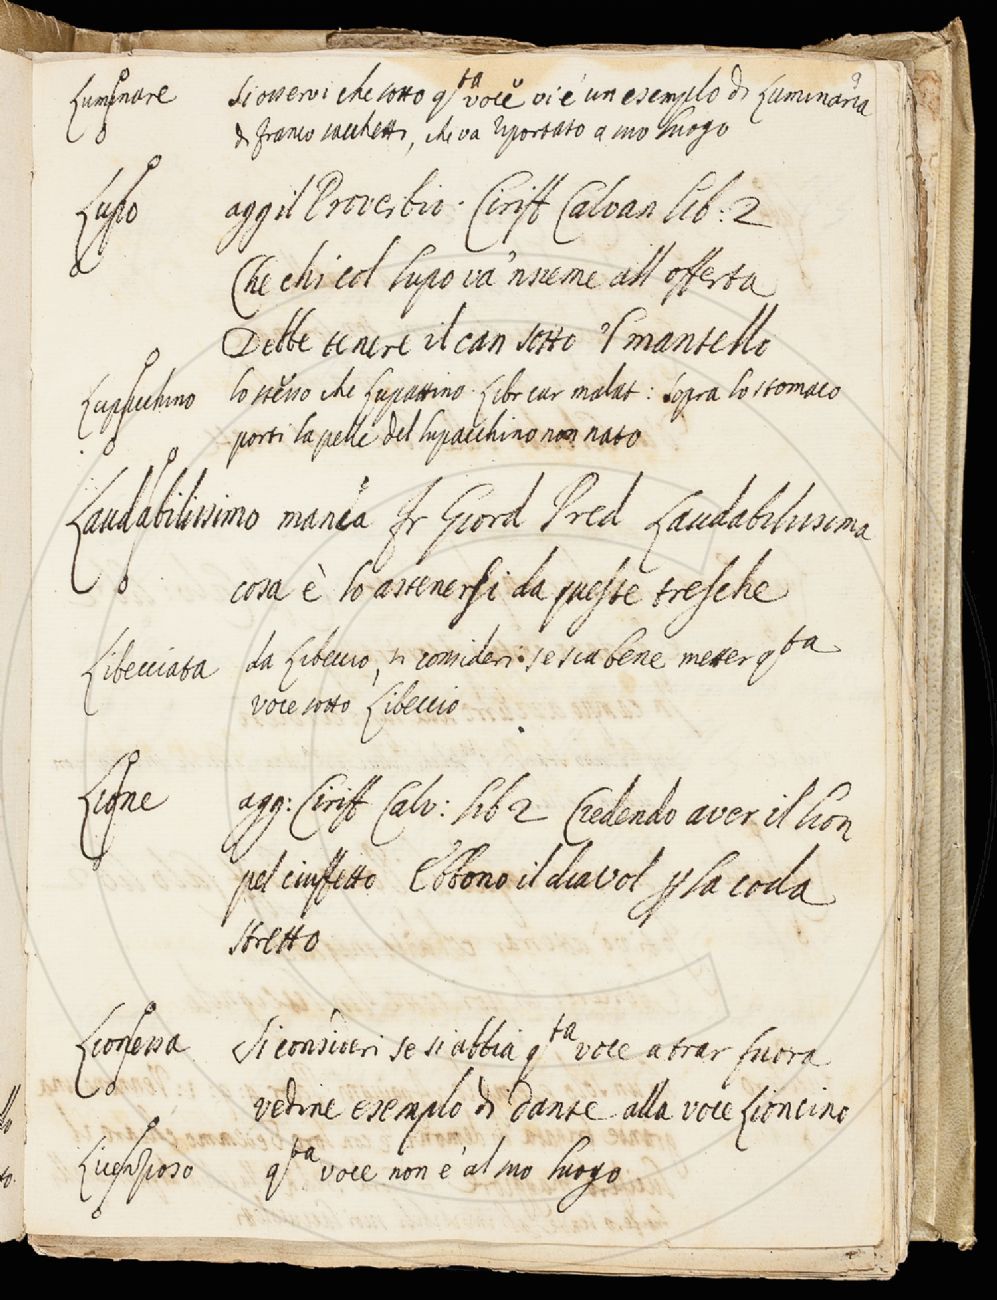 Luminare Si osservi che sotto q.ta voce vi è un esemplo di Luminaria
di franco sacchetti, che va riportato a suo luogo
Lupo agg il Proverbio. Ciriff Calvan lib: 2
Che chi col lupo va 'nsieme all offerta
Debbe tenere il can sotto 'l mantello
Lupicchino lo stesso che Lupattino. Libr cur malat: Sopra lo stomaco
porti la pelle del lupacchino non nato
Laudabilissimo manca fr Giord Pred Laudabilissima
cosa è lo astenersi da queste tresche
Libecciata da Libeccio, si consideri se stia bene metter q.ta
voce sotto Libeccio
Lione agg: Ciriff Calv: lib 2 Credendo aver il lion
pel ciuffetto Ebbono il diavol p la coda
stretto
Lionessa Si consideri se si abbia q.ta voce a trar fuora
vedine esemplo di Dante alla voce Lioncino
q.ta voce non è al suo luogo